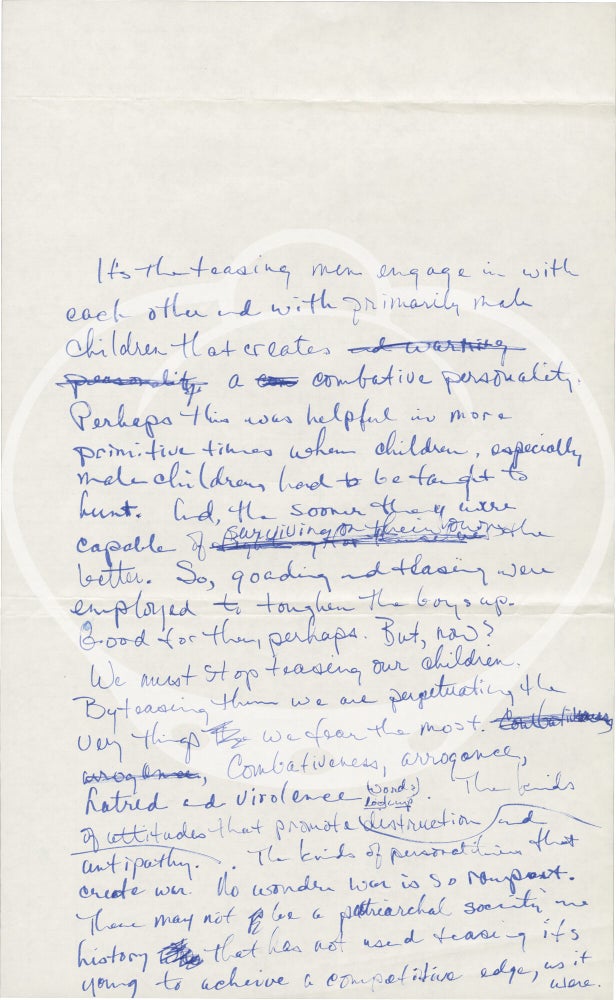 It's the teasing men engage in with
each other and with primarily male
children that creates and warring
personality, a com combative personality.
Perhaps this was helpful in more
primitive times when children, especially
male children, had to be taught to
hunt. And, the sooner they were
capable of surviving on their own, the
better. So, goading and teasing were
employed to toughen the boys up.
Good for then, perhaps. But, now?
We must stop teasing our children.
By teasing them we are perpetuating the
very things we fear the most. Combativeness,
arrogance, Combativeness, arrogance,
hatred and virolence (word?) The kinds
look up
of attitudes that promote destruction and
antipathy. The kinds of personalities that
create war. No wonder war is so rampant.
There may not be a patriarchal society in
history that has not used teasing its
young to acheive a competitive edge, as it
were.